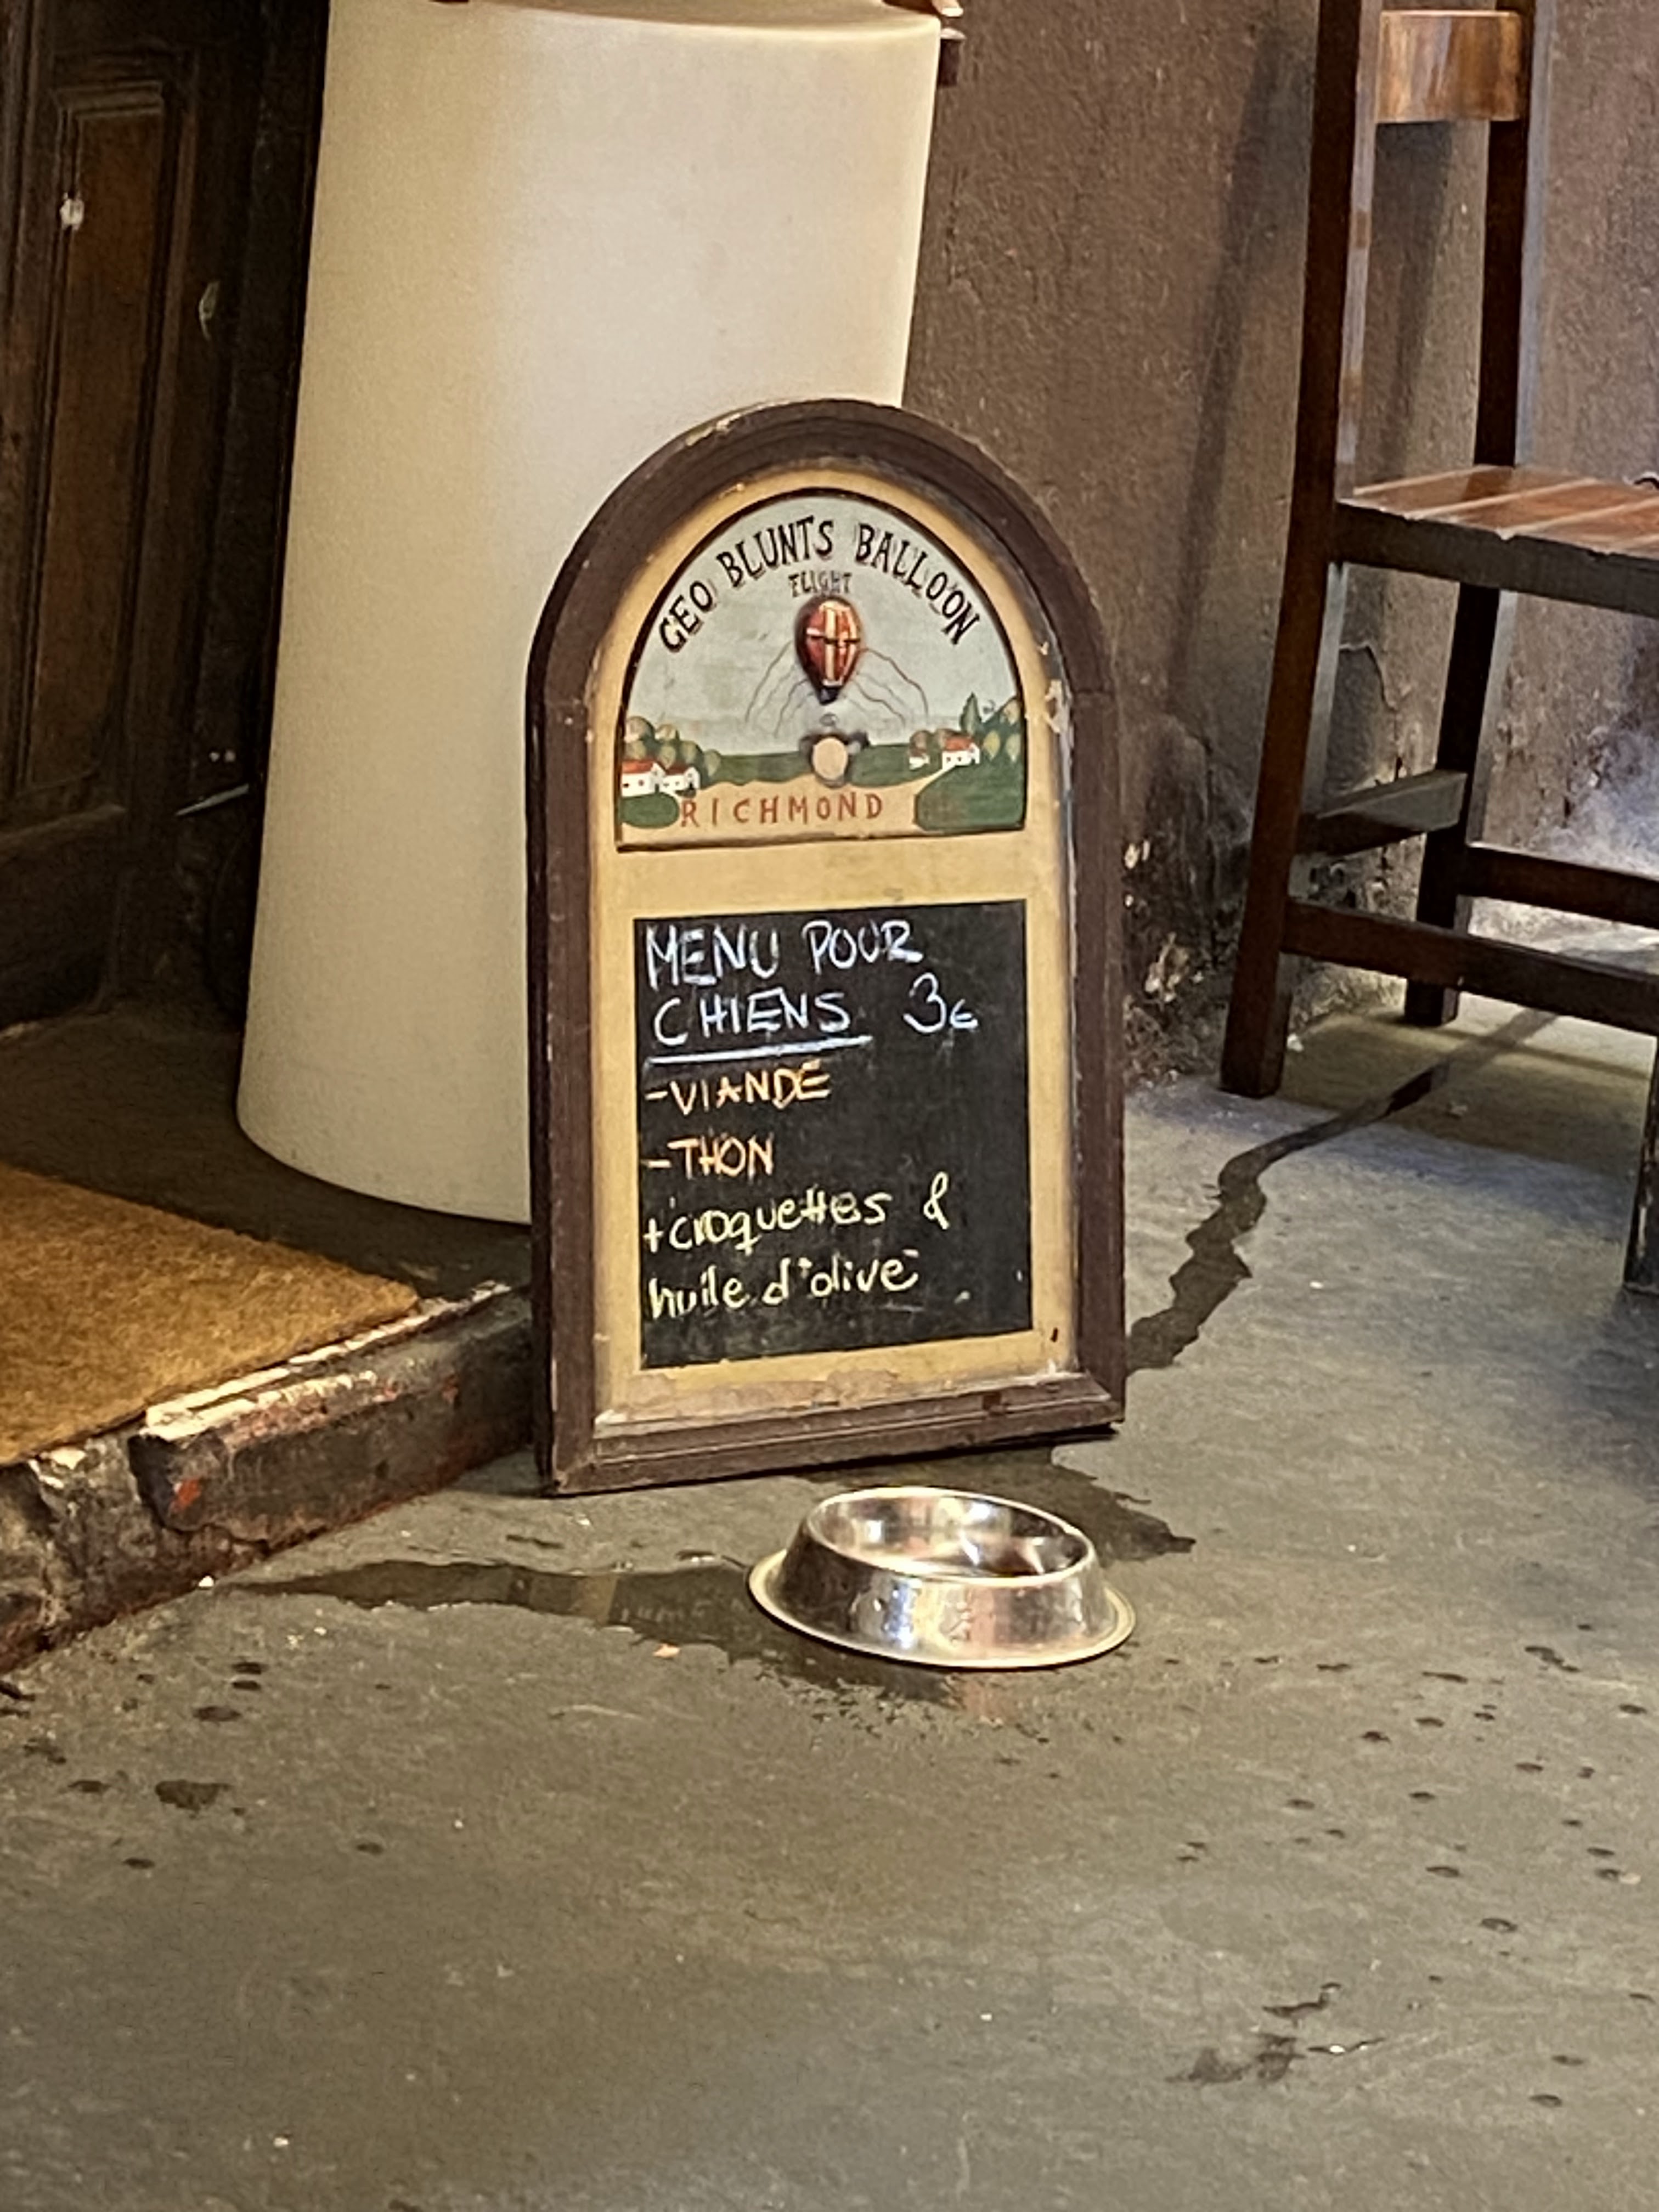 GEO BLUNTS BALLOON
FLIGHT
RICHMOND
MENU POUR
CHIENS 3€
-VIANDE
-THON
+croquettes &
huile d'olive